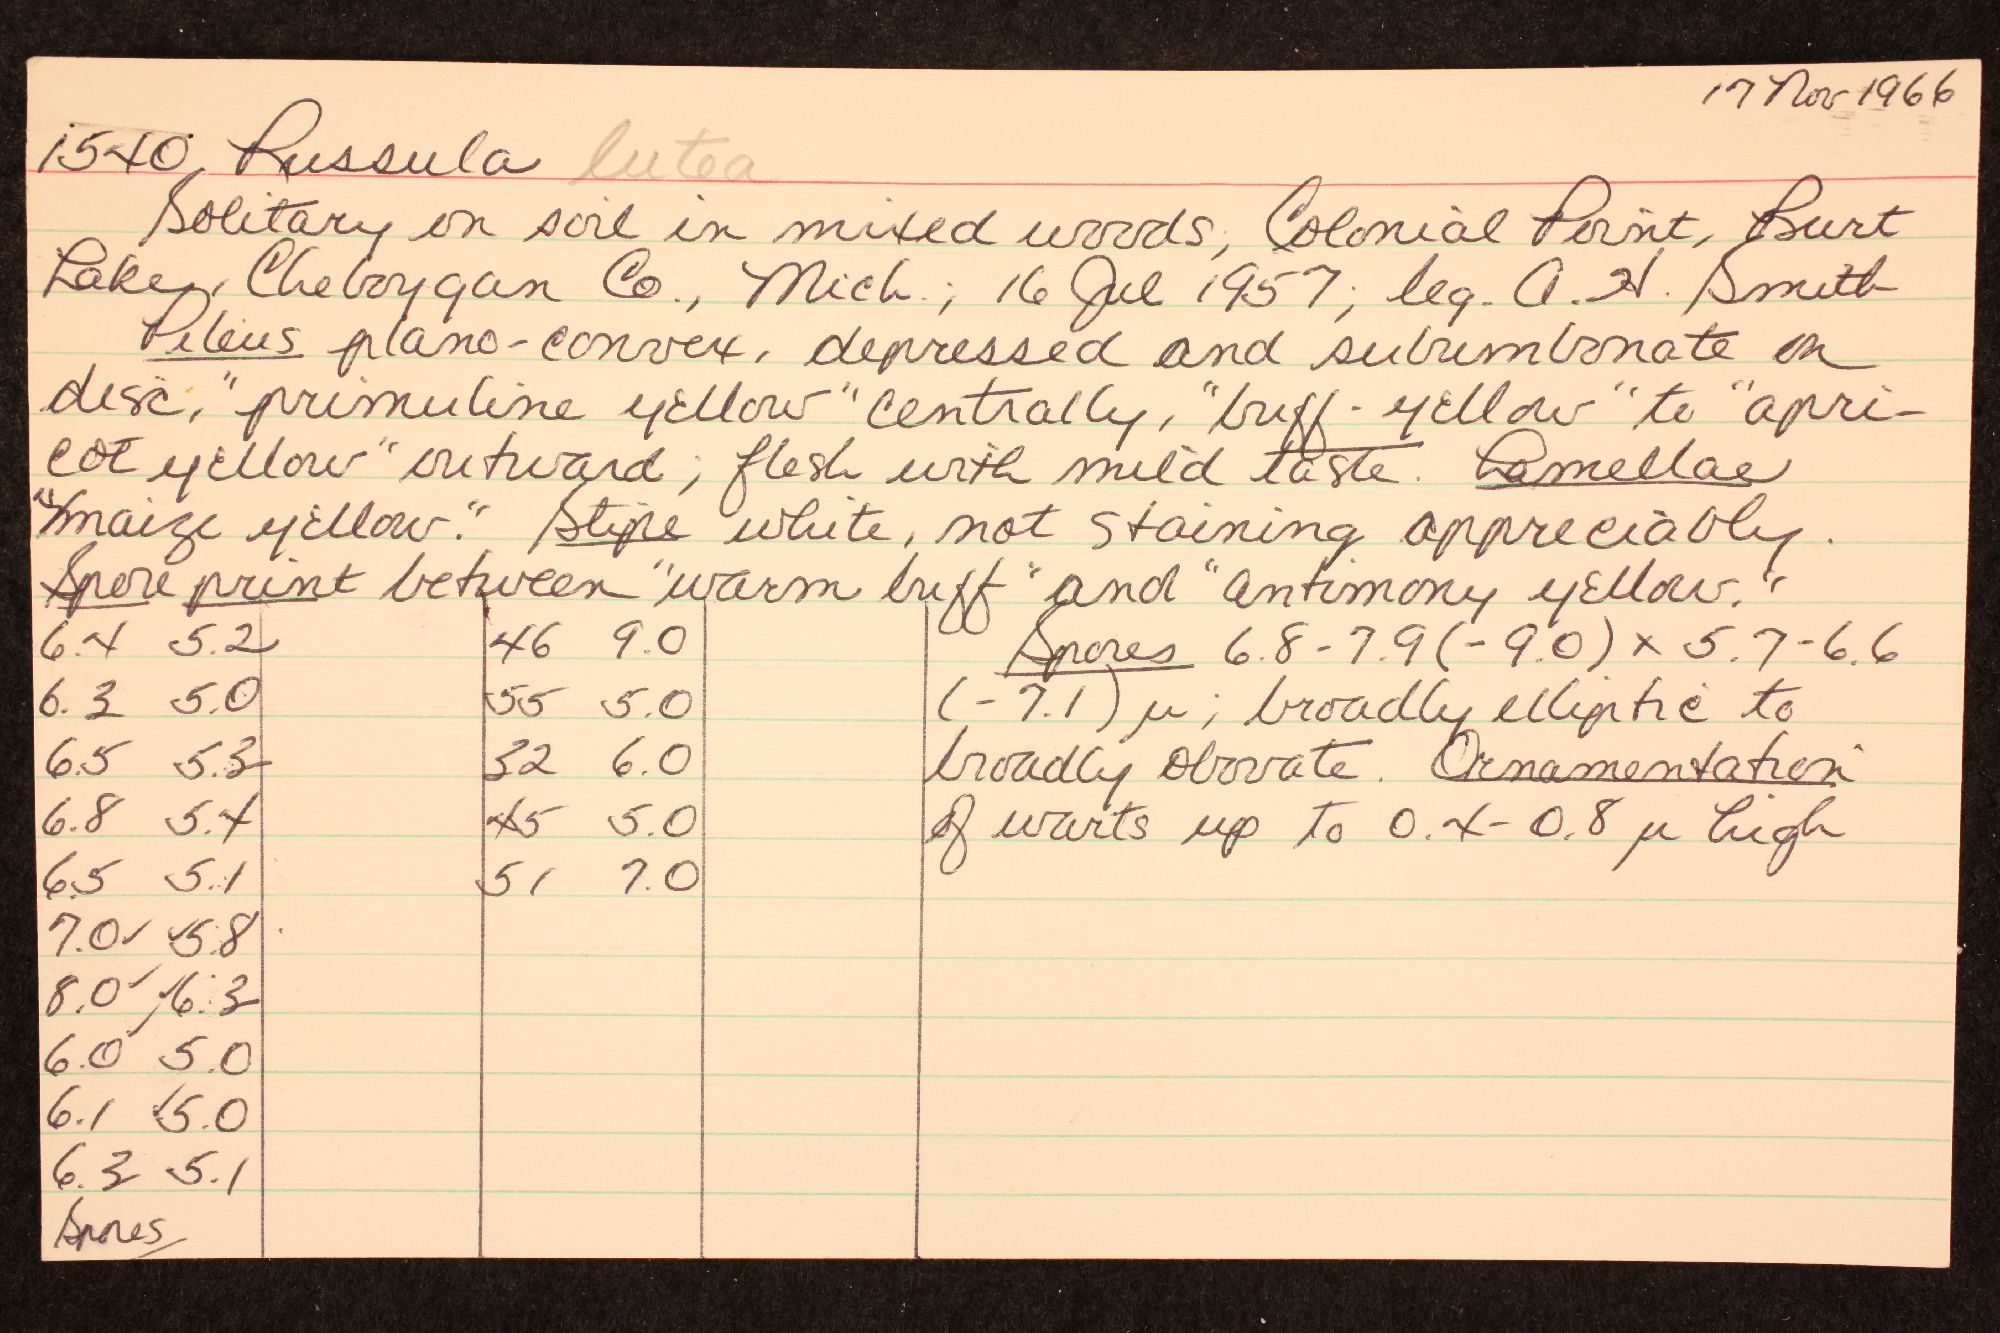 17 Nov 1966
1540, Russula lutea
Solitary on soil in mixed woods, Colonial Point, Burt
Lake, Cheboygan Co., Mich.; 16 Jul 1957; leg. A. H. Smith
Pileus plano-convex, depressed and subumbonate on
disc, "primuline yellow" centrally, "buff-yellow" to "apri-
cot yellow" outward; flesh with mild taste. Lamellae
"maize yellow." Stipe white, not staining appreciably.
Spore print between "warm buff" and "antimony yellow."
6.4 5.2 46 9.0 Spores 6.8-7.9(-9.0) x 5.7-6.6
6.3 5.0 55 5.0 (-7.1) µ; broadly elliptic to
6.5 5.3 32 6.0 broadly obovate. Ornamentation
6.8 5.4 45 5.0 of warts up to 0.4-0.8 µ high
6.5 5.1 51 7.0
7.0✓ ✓5.8
8.0✓ ✓6.3
6.0 5.0
6.1 5.0
6.3 5.1
Spores